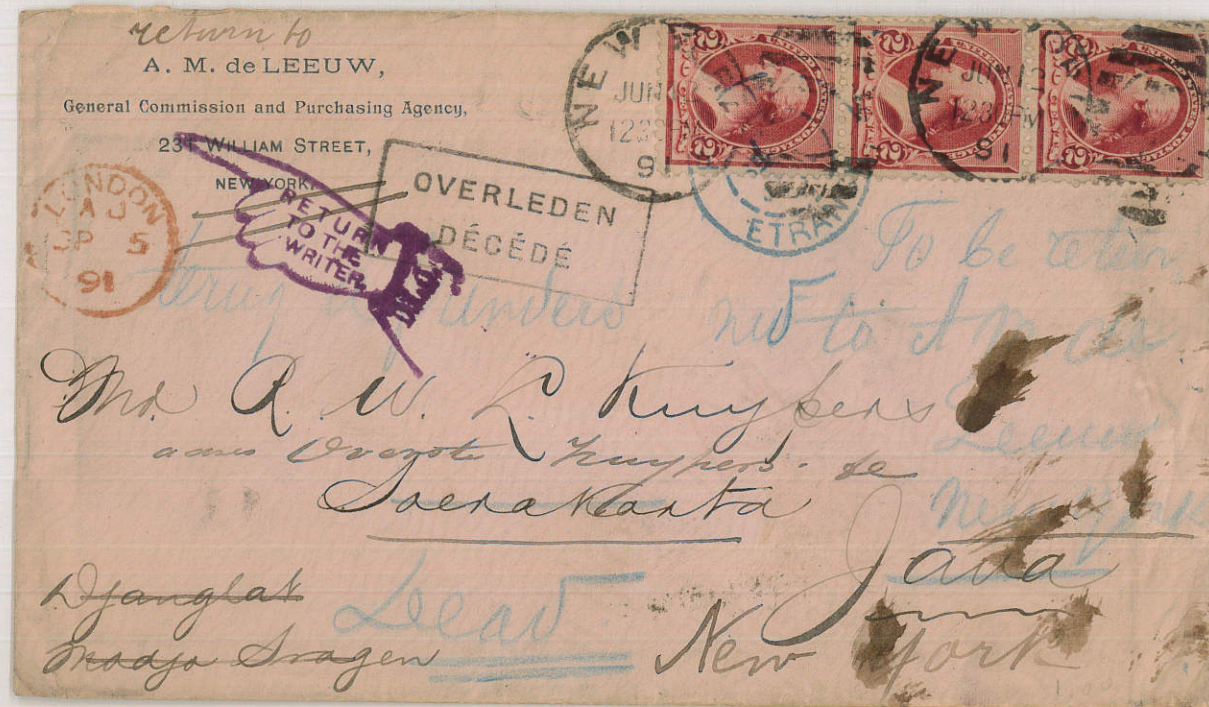 return to
A. M. de LEEUW,
General Commission and Purchasing Agency,
231 WILLIAM STREET,
NEW YORK.
LONDON
A J
SP 5
91
RETURN
TO THE
WRITER
OVERLEDEN
DÉCÉDÉ
NEW
JUN
1230PM
91
NEW YO
JUN 12
1230PM
91
ETRAN
To be return
terug unders
to A M de
Leeuw
New York
Mr. R. W. L. Kuypers
Kuypers. de
Soerakarta
Java
Djanglat
Modjo Sragen
Dead
New York